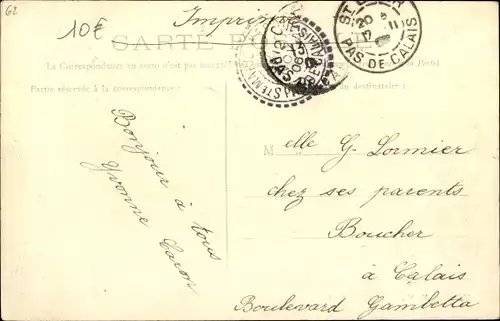 62
10€
Imprimé
CARTE POSTALE
La Correspondance au recto n'est pas acceptée
Partie réservée à la correspondance:
du destinataire:
PAS DE CALAIS
PAS DE CALAIS
Bonjour à tous
Yvonne Caron
Melle G. Lormier
chez ses parents
Boucher
à Calais
Boulevard Gambetta